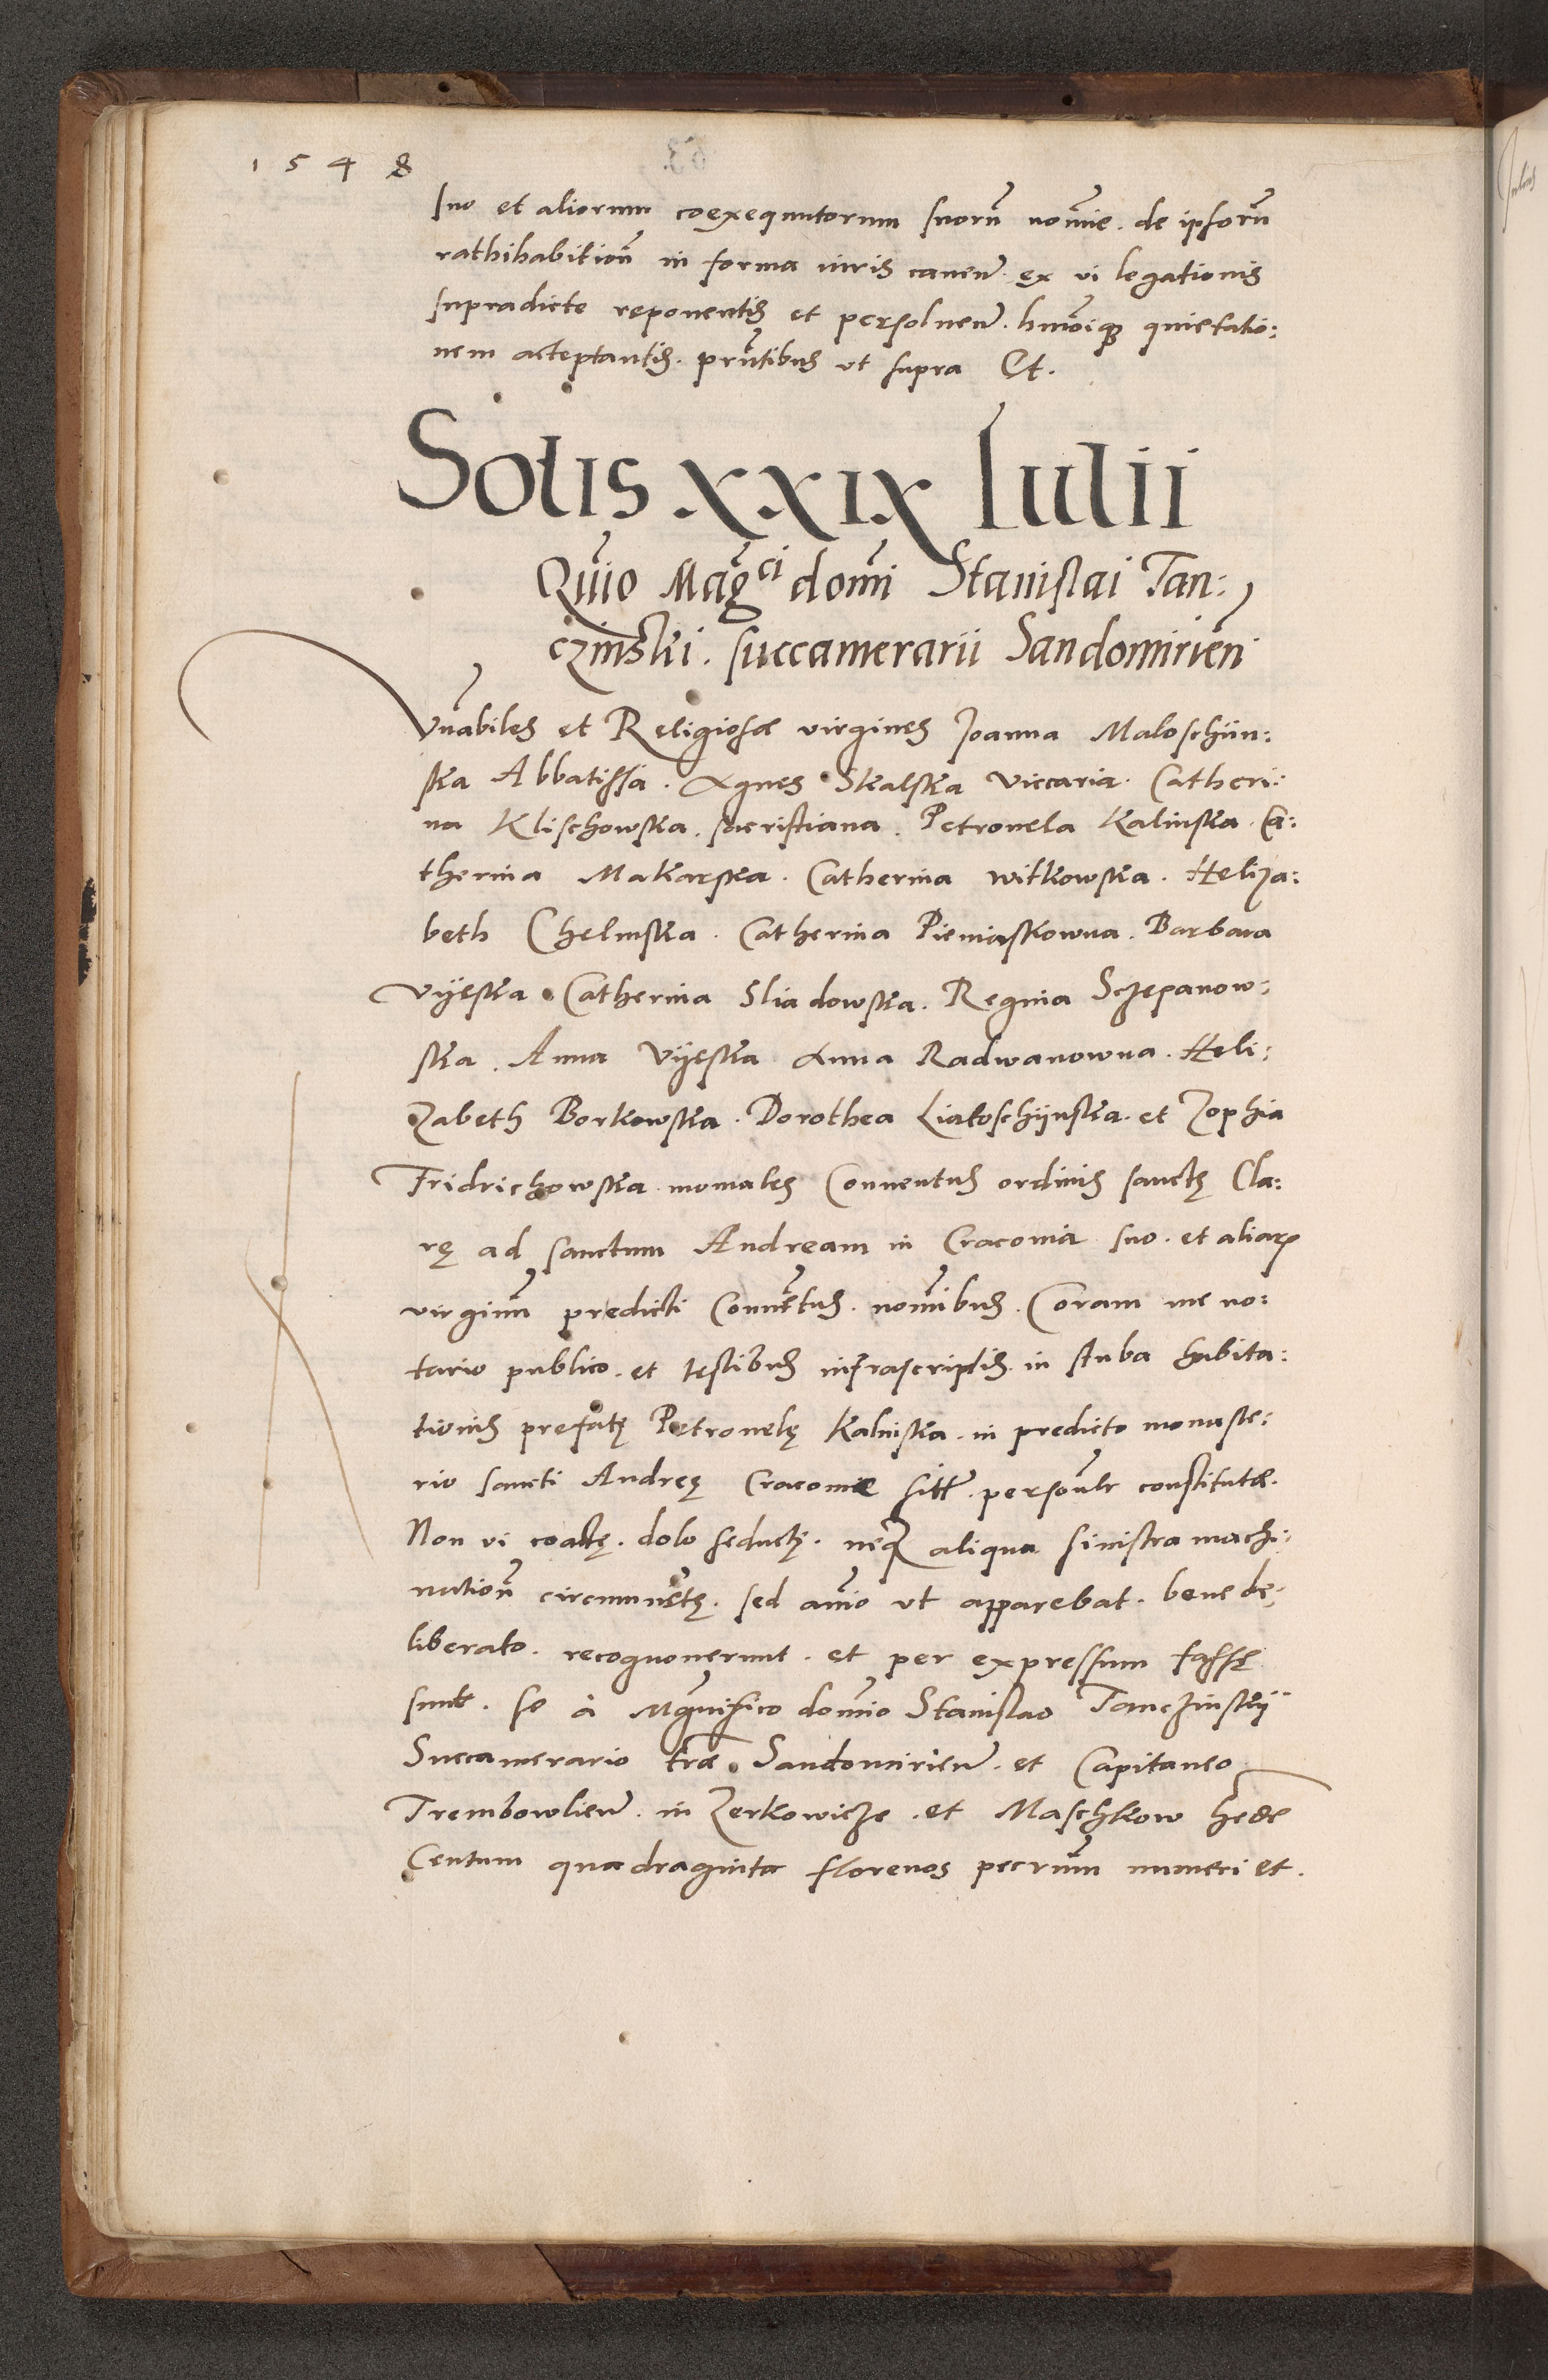 1548
suo et aliorum coexequutorum suorū nomīe. de ipsorū
rathihabitionē in forma iuris caven̄. ex vi legationis
supradicte reponentis et persolven̄. hmōiqꝫ quietatio:
nem acceptantis. prn̄tibus vt supra Et.
Solis xxix Iulii
Quīo Maḡci domī Stanislai Tan:
czinskii. succamerarii Sandomirien̄
Vn̄abiles et Religiosæ virgines Joanna Maloschiin:
ska Abbatissa. Agnes Skalska viccaria. Catheri:
na Klischowska. sacristiana. Petronela Kalinska. Ca:
therina Makarska. Catherina witkowska. Heliza:
beth Chelmska. Catherina Pieniaskowna. Barbara
Vÿeska. Catherina Sliadowska. Regina Sczepanow:
ska. Anna Vÿeska Anna Radwanowna. Heli:
zabeth Borkowska. Dorothea Liatoschÿnska. et Zophia
Fridrichowska. moniales Conventus ordinis sanctę Cla:
rę ad sanctum Andream in Cracovia suo. et aliarꝫ
virginū predicti Convētus. nomībus. Coram me no:
tario publico. et testibus infrascriptis. in stuba habita:
tionis prefatę Petronelę Kalinska. in predicto monaste:
rio sancti Andreę Cracoviæ sitt̄. persoūlr constitutæ.
Non vi coactę. dolo seductę. neqꝫ aliqua sinistra machi:
nationē circumvētę. sed anīo vt apparebat. bene de:
liberato. recognoverunt. et per expressum fassę
sunt. se à Mag̅nifico domīo Stanislao Tanczinskÿ
Succamerario træ. Sandomirien̄. et Capitaneo
Trembowlien̄. in Zerkowicze. et Maschkow hęde
Centum quadraginta florenos pecunīm numeri et.